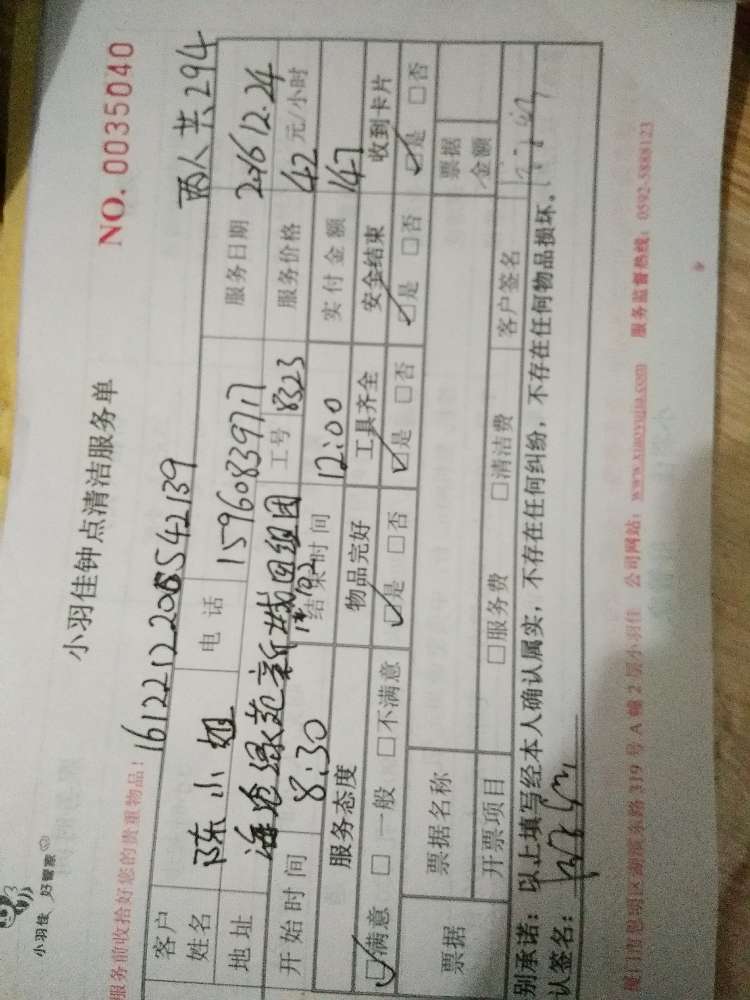 小羽佳 好管家
小羽佳钟点清洁服务单
NO. 0035040
服务前收拾好您的贵重物品！
两人共294
客户姓名 陈小姐 电话 15960839717 服务日期 2016 12.24
地址 海沧绿苑新城四组团 工号 8323 服务价格 42 元/小时
开始时间 8:30 结束时间 12:00 实付金额 147
服务态度 物品完好 工具齐全 安全结束 收到卡片
☑满意 □一般 □不满意 ☑是 □否 ☑是 □否 ☑是 □否 ☑是 □否
票据 票据名称 票据金额
开票项目 □服务费 □清洁费 客户签名
别承诺：以上填写经本人确认属实，不存在任何纠纷，不存在任何物品损坏。
认签名：
厦门市思明区湖滨东路319号A幢2层小羽佳 公司网站：www.xiaoyujia.com 服务监督热线：0592-5888123